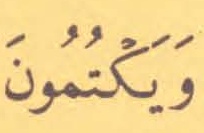 وَيَكْتُمُونَ